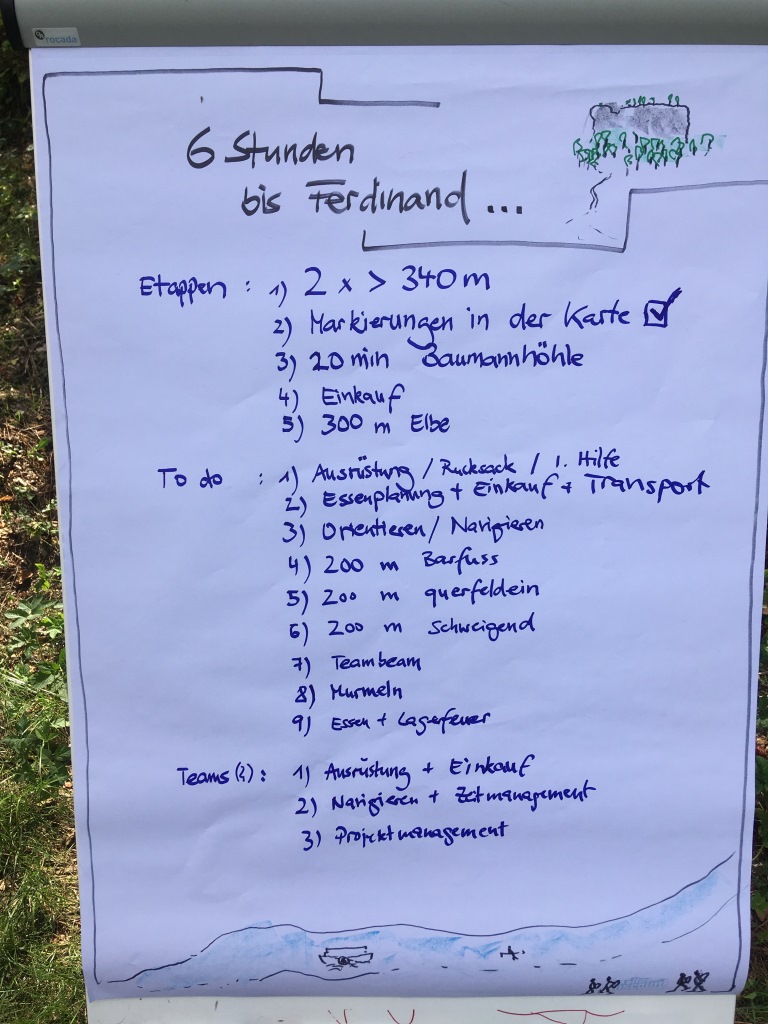 rocada
6 Stunden
bis Ferdinand ...
Etappen : 1) 2 x > 340 m
2) Markierungen in der Karte
3) 20 min Baumannhöhle
4) Einkauf
5) 300 m Elbe
To do : 1) Ausrüstung / Rucksack / 1. Hilfe
2) Essenplanung + Einkauf + Transport
3) Orientieren / Navigieren
4) 200 m Barfuss
5) 200 m querfeldein
6) 200 m Schweigend
7) Teambeam
8) Murmeln
9) Essen + Lagerfeuer
Teams (?) : 1) Ausrüstung + Einkauf
2) Navigieren + Zeitmanagement
3) Projektmanagement